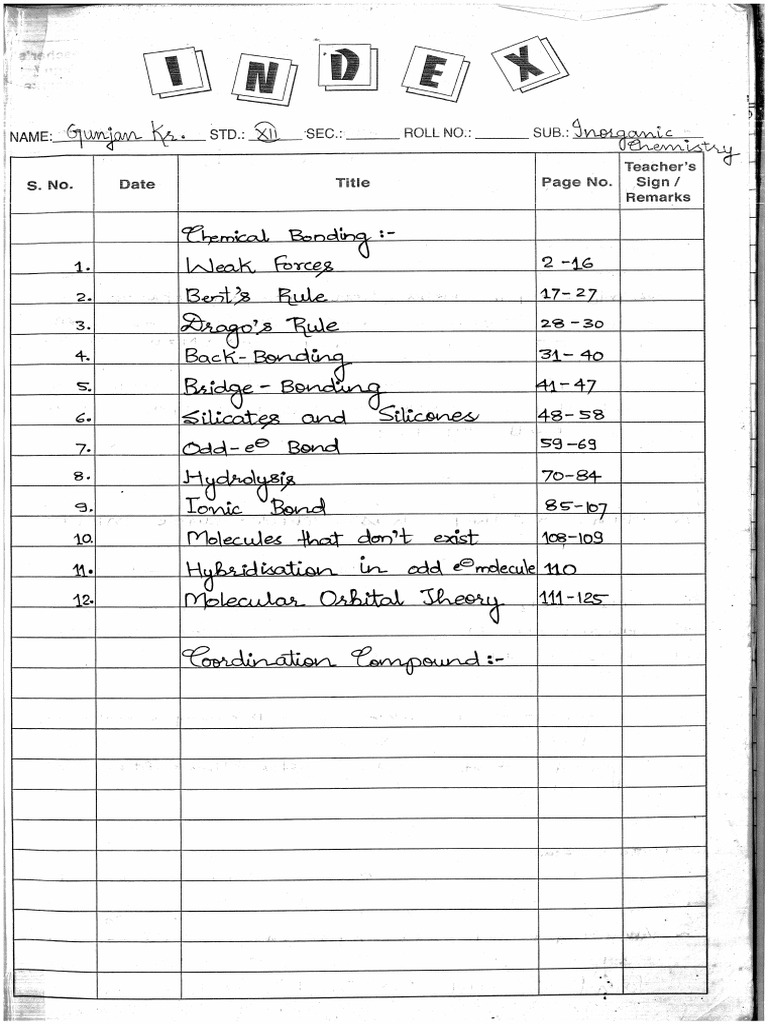 INDEX
NAME: Gunjan Kr. STD.: XII SEC.: ROLL NO.: SUB.: Inorganic
Chemistry
S. No. Date Title Page No. Teacher's Sign / Remarks
Chemical Bonding :-
1. Weak Forces 2-16
2. Bent's Rule 17-27
3. Drago's Rule 28-30
4. Back-Bonding 31-40
5. Bridge-Bonding 41-47
6. Silicates and Silicones 48-58
7. Odd-e⊖ Bond 59-69
8. Hydrolysis 70-84
9. Ionic Bond 85-107
10. Molecules that don't exist 108-109
11. Hybridisation in odd e⊖ molecule 110
12. Molecular Orbital Theory 111-125
Coordination Compound :-